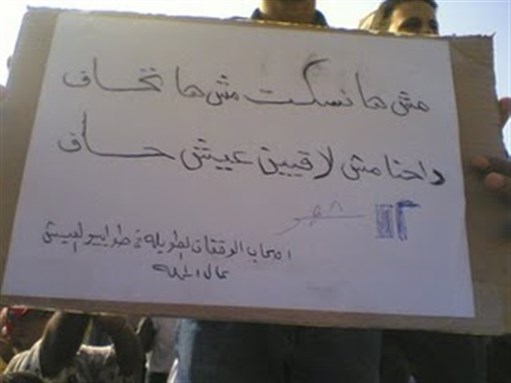 مش هانسكت مش هانخاف
داحنا مش لاقيين عيش حاف
اصحاب الوقفات الطويله فى طوابير العيش
عمال المحله